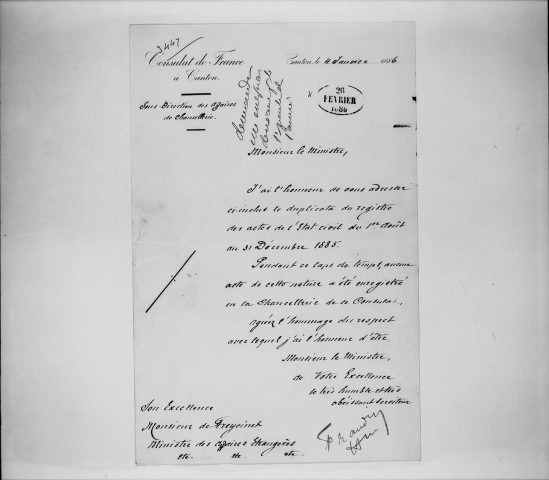 3.447
Consulat de France
à Canton.
Canton, le 4 Janvier 1886
Sous Direction des affaires
de Chancellerie.
26
FEVRIER
1886
Monsieur le Ministre,
J'ai l'honneur de vous adresser
ci-inclus le duplicata du registre
des actes de l'Etat civil du 1er Août
au 31 Décembre 1885.
Pendant ce laps de temps, aucun
acte de cette nature a été enregistré
en la Chancellerie de ce Consulat,
agréez l'hommage du respect
avec lequel j'ai l'honneur d'être,
Monsieur le Ministre,
de Votre Excellence
le très humble et très
obéissant serviteur
Son Excellence
Monsieur de Freycinet
Ministre des affaires Etrangères
etc. etc. etc.